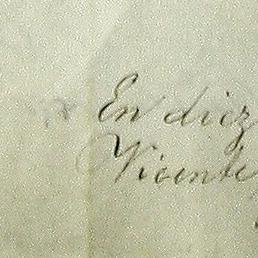 En diez
Vicente